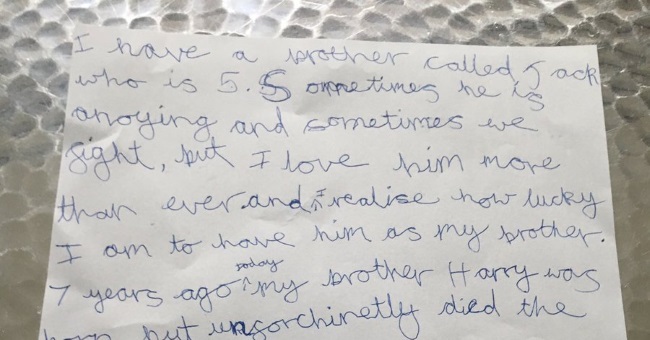 I have a brother called Jack
who is 5. Sometimes he is
anoying and sometimes we
fight, but I love him more
than ever. and I realise how lucky
I am to have him as my brother.
today
7 years ago ^ my brother Harry was
born but unforchinetly died the